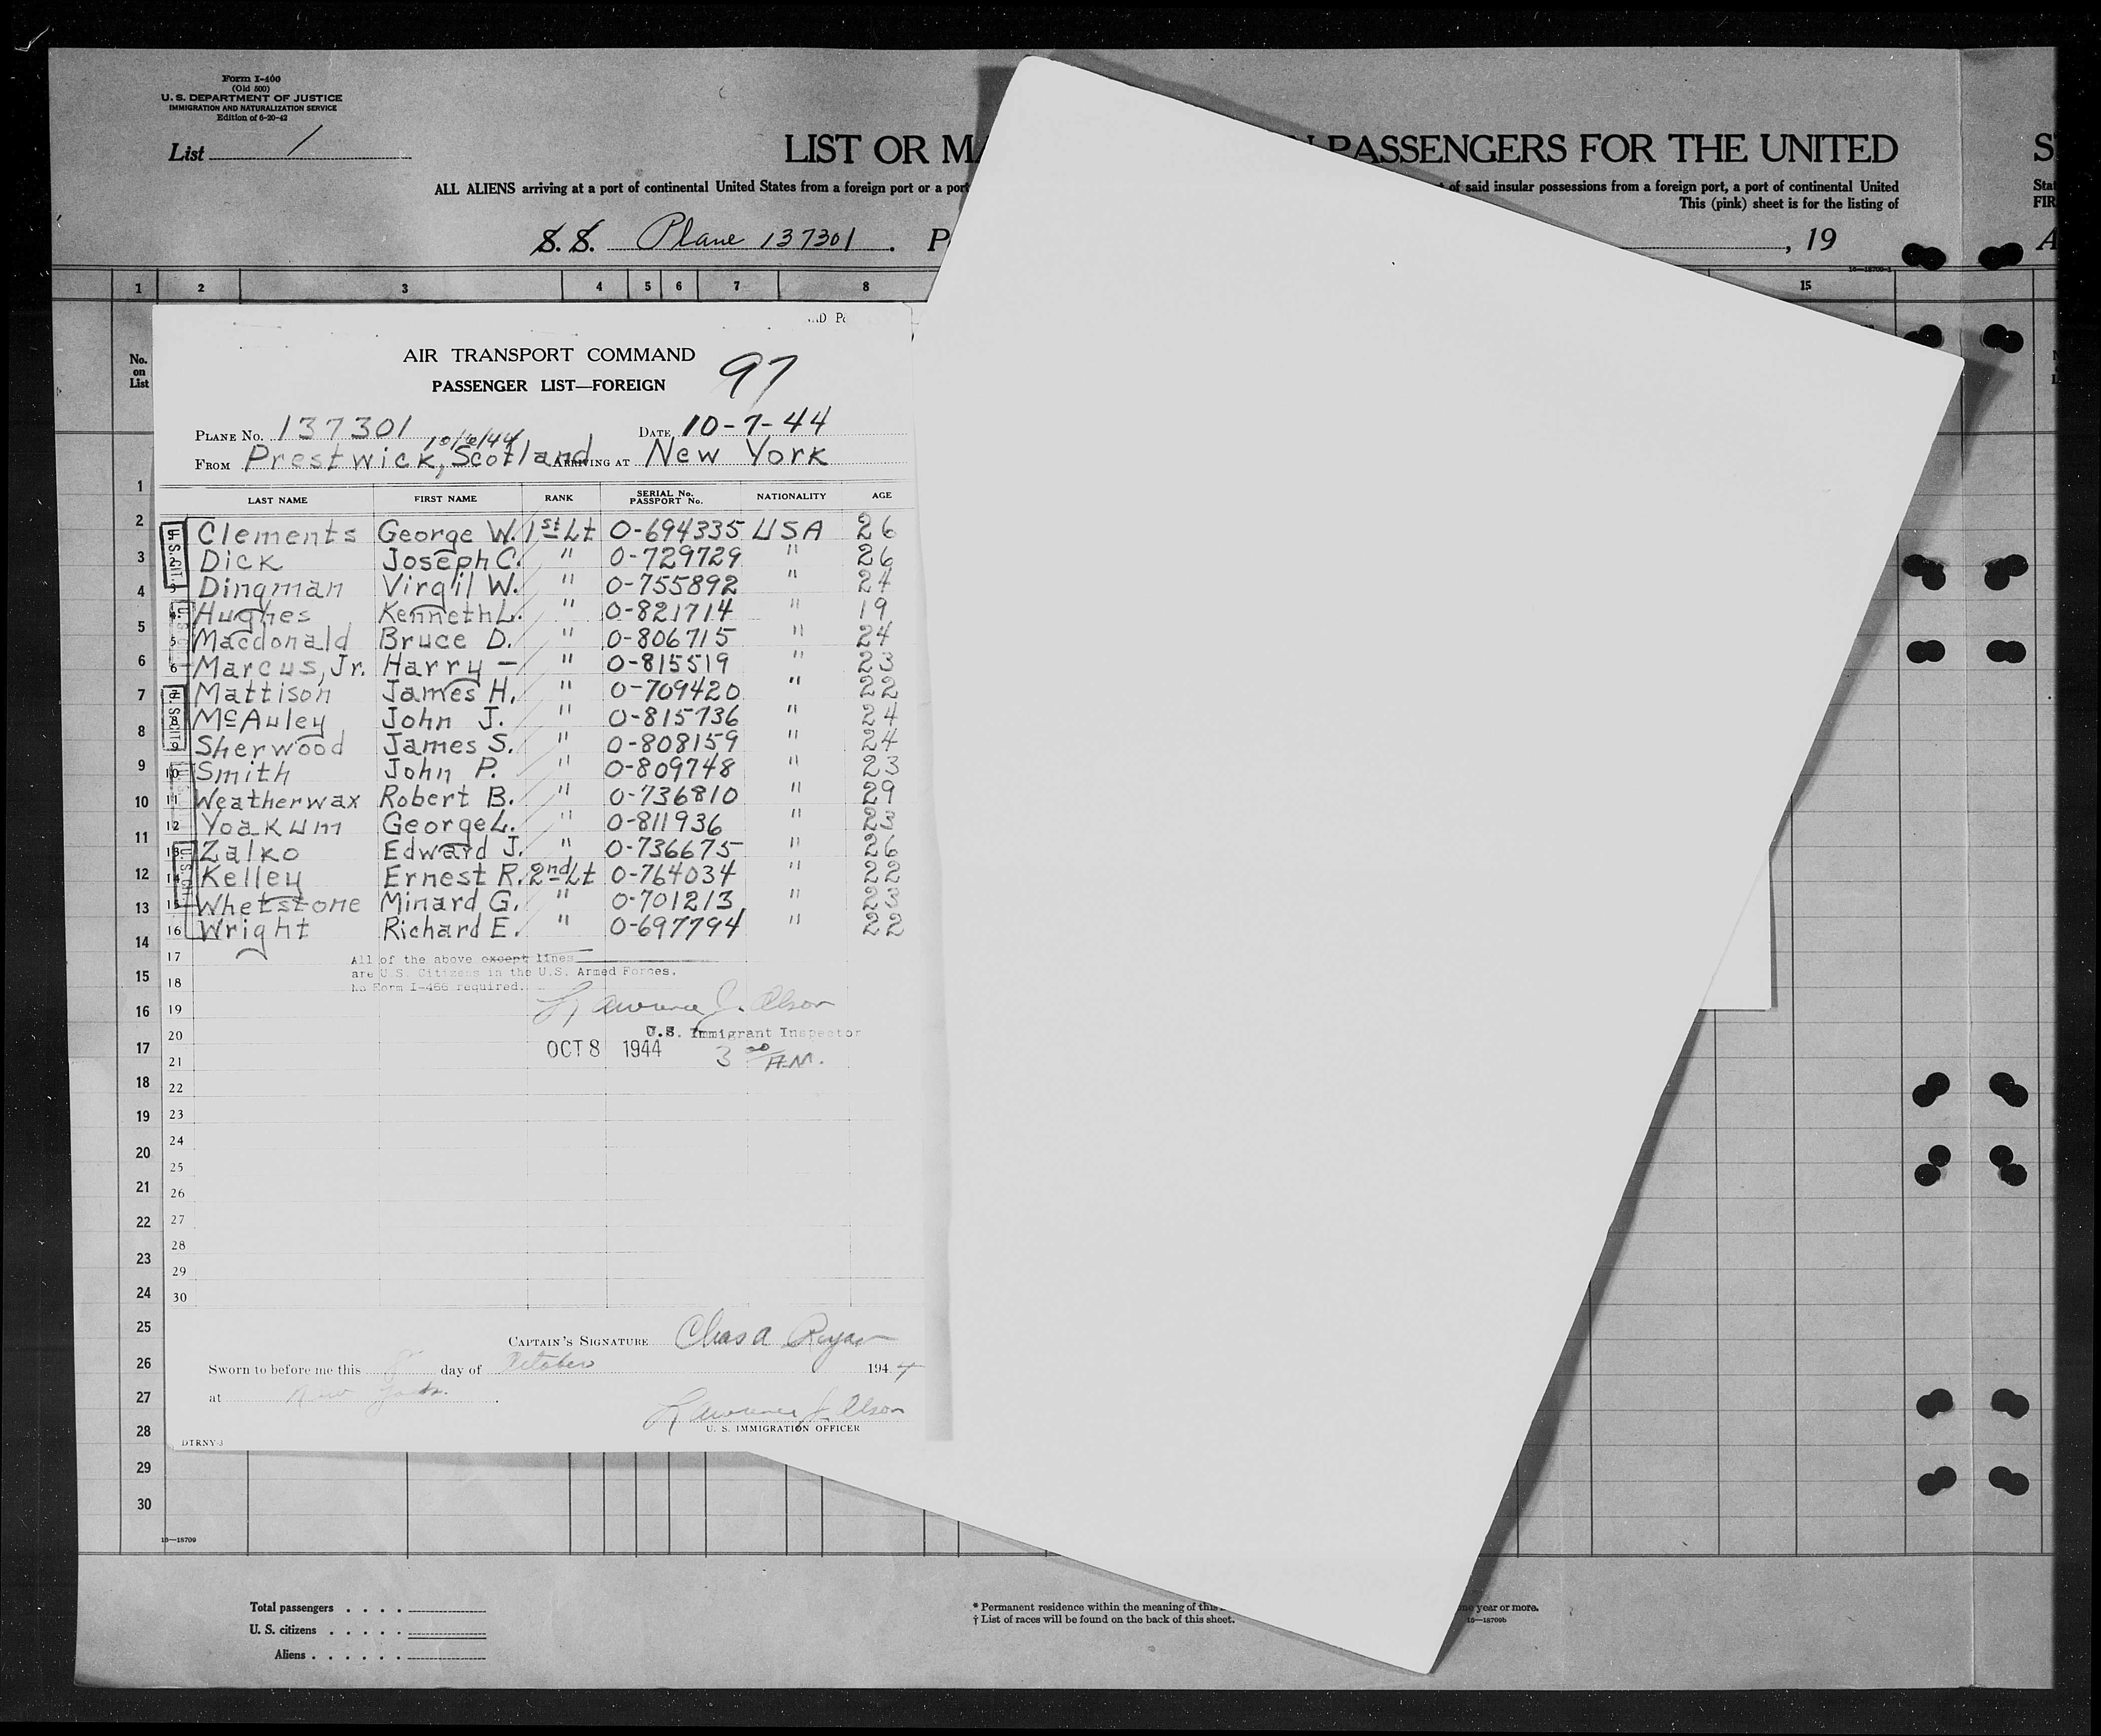 Form I-400
(Old 500)
U. S. DEPARTMENT OF JUSTICE
IMMIGRATION AND NATURALIZATION SERVICE
Edition of 6-20-42
List 1
LIST OR MA PASSENGERS FOR THE UNITED S
ALL ALIENS arriving at a port of continental United States from a foreign port or a port of said insular possessions from a foreign port, a port of continental United Stat
This (pink) sheet is for the listing of FIR
S. S. Plane 137301 . P , 19 A
1 2 3 4 5 6 7 8 15
No. on List
AIR TRANSPORT COMMAND
97
PASSENGER LIST—FOREIGN
PLANE No. 137301 DATE 10-7-44
10/6/44
FROM Prestwick, Scotland ARRIVING AT New York
LAST NAME FIRST NAME RANK SERIAL No. PASSPORT No. NATIONALITY AGE
Clements George W. 1st Lt O-694335 USA 26
2 Dick Joseph C. " O-729729 " 26
3 Dingman Virgil W. " O-755892 " 24
4 Hughes Kenneth L. " O-821714 " 19
5 Macdonald Bruce D. " O-806715 " 24
6 Marcus, Jr. Harry — " O-815519 " 23
7 Mattison James H. " O-709420 " 22
8 McAuley John J. " O-815736 " 24
9 Sherwood James S. " O-808159 " 24
10 Smith John P. " O-809748 " 23
11 Weatherwax Robert B. " O-736810 " 29
12 Yoakum George L. " O-811936 " 23
13 Zalko Edward J. " O-736675 " 26
14 Kelley Ernest R. 2nd Lt O-764034 " 22
15 Whetstone Minard G. " O-701213 " 23
16 Wright Richard E. " O-697794 " 22
17 All of the above except lines
are U.S. Citizens in the U.S. Armed Forces.
18 No Form I-466 required.
19 Lawrence J. Olson
20 U.S. Immigrant Inspector
21 OCT 8 1944 3 00 A.M.
22
23
24
25
26
27
28
29
30
CAPTAIN'S SIGNATURE Chas A Ryan
Sworn to before me this 8 day of October 1944
at New York.
Lawrence J. Olson
U. S. IMMIGRATION OFFICER
DTRNY-3
1
2
3
4
5
6
7
8
9
10
11
12
13
14
15
16
17
18
19
20
21
22
23
24
25
26
27
28
29
30
16—18709
Total passengers . . . .
U. S. citizens . . . . .
Aliens . . . . . .
* Permanent residence within the meaning of this one year or more.
† List of races will be found on the back of this sheet. 16—18709b